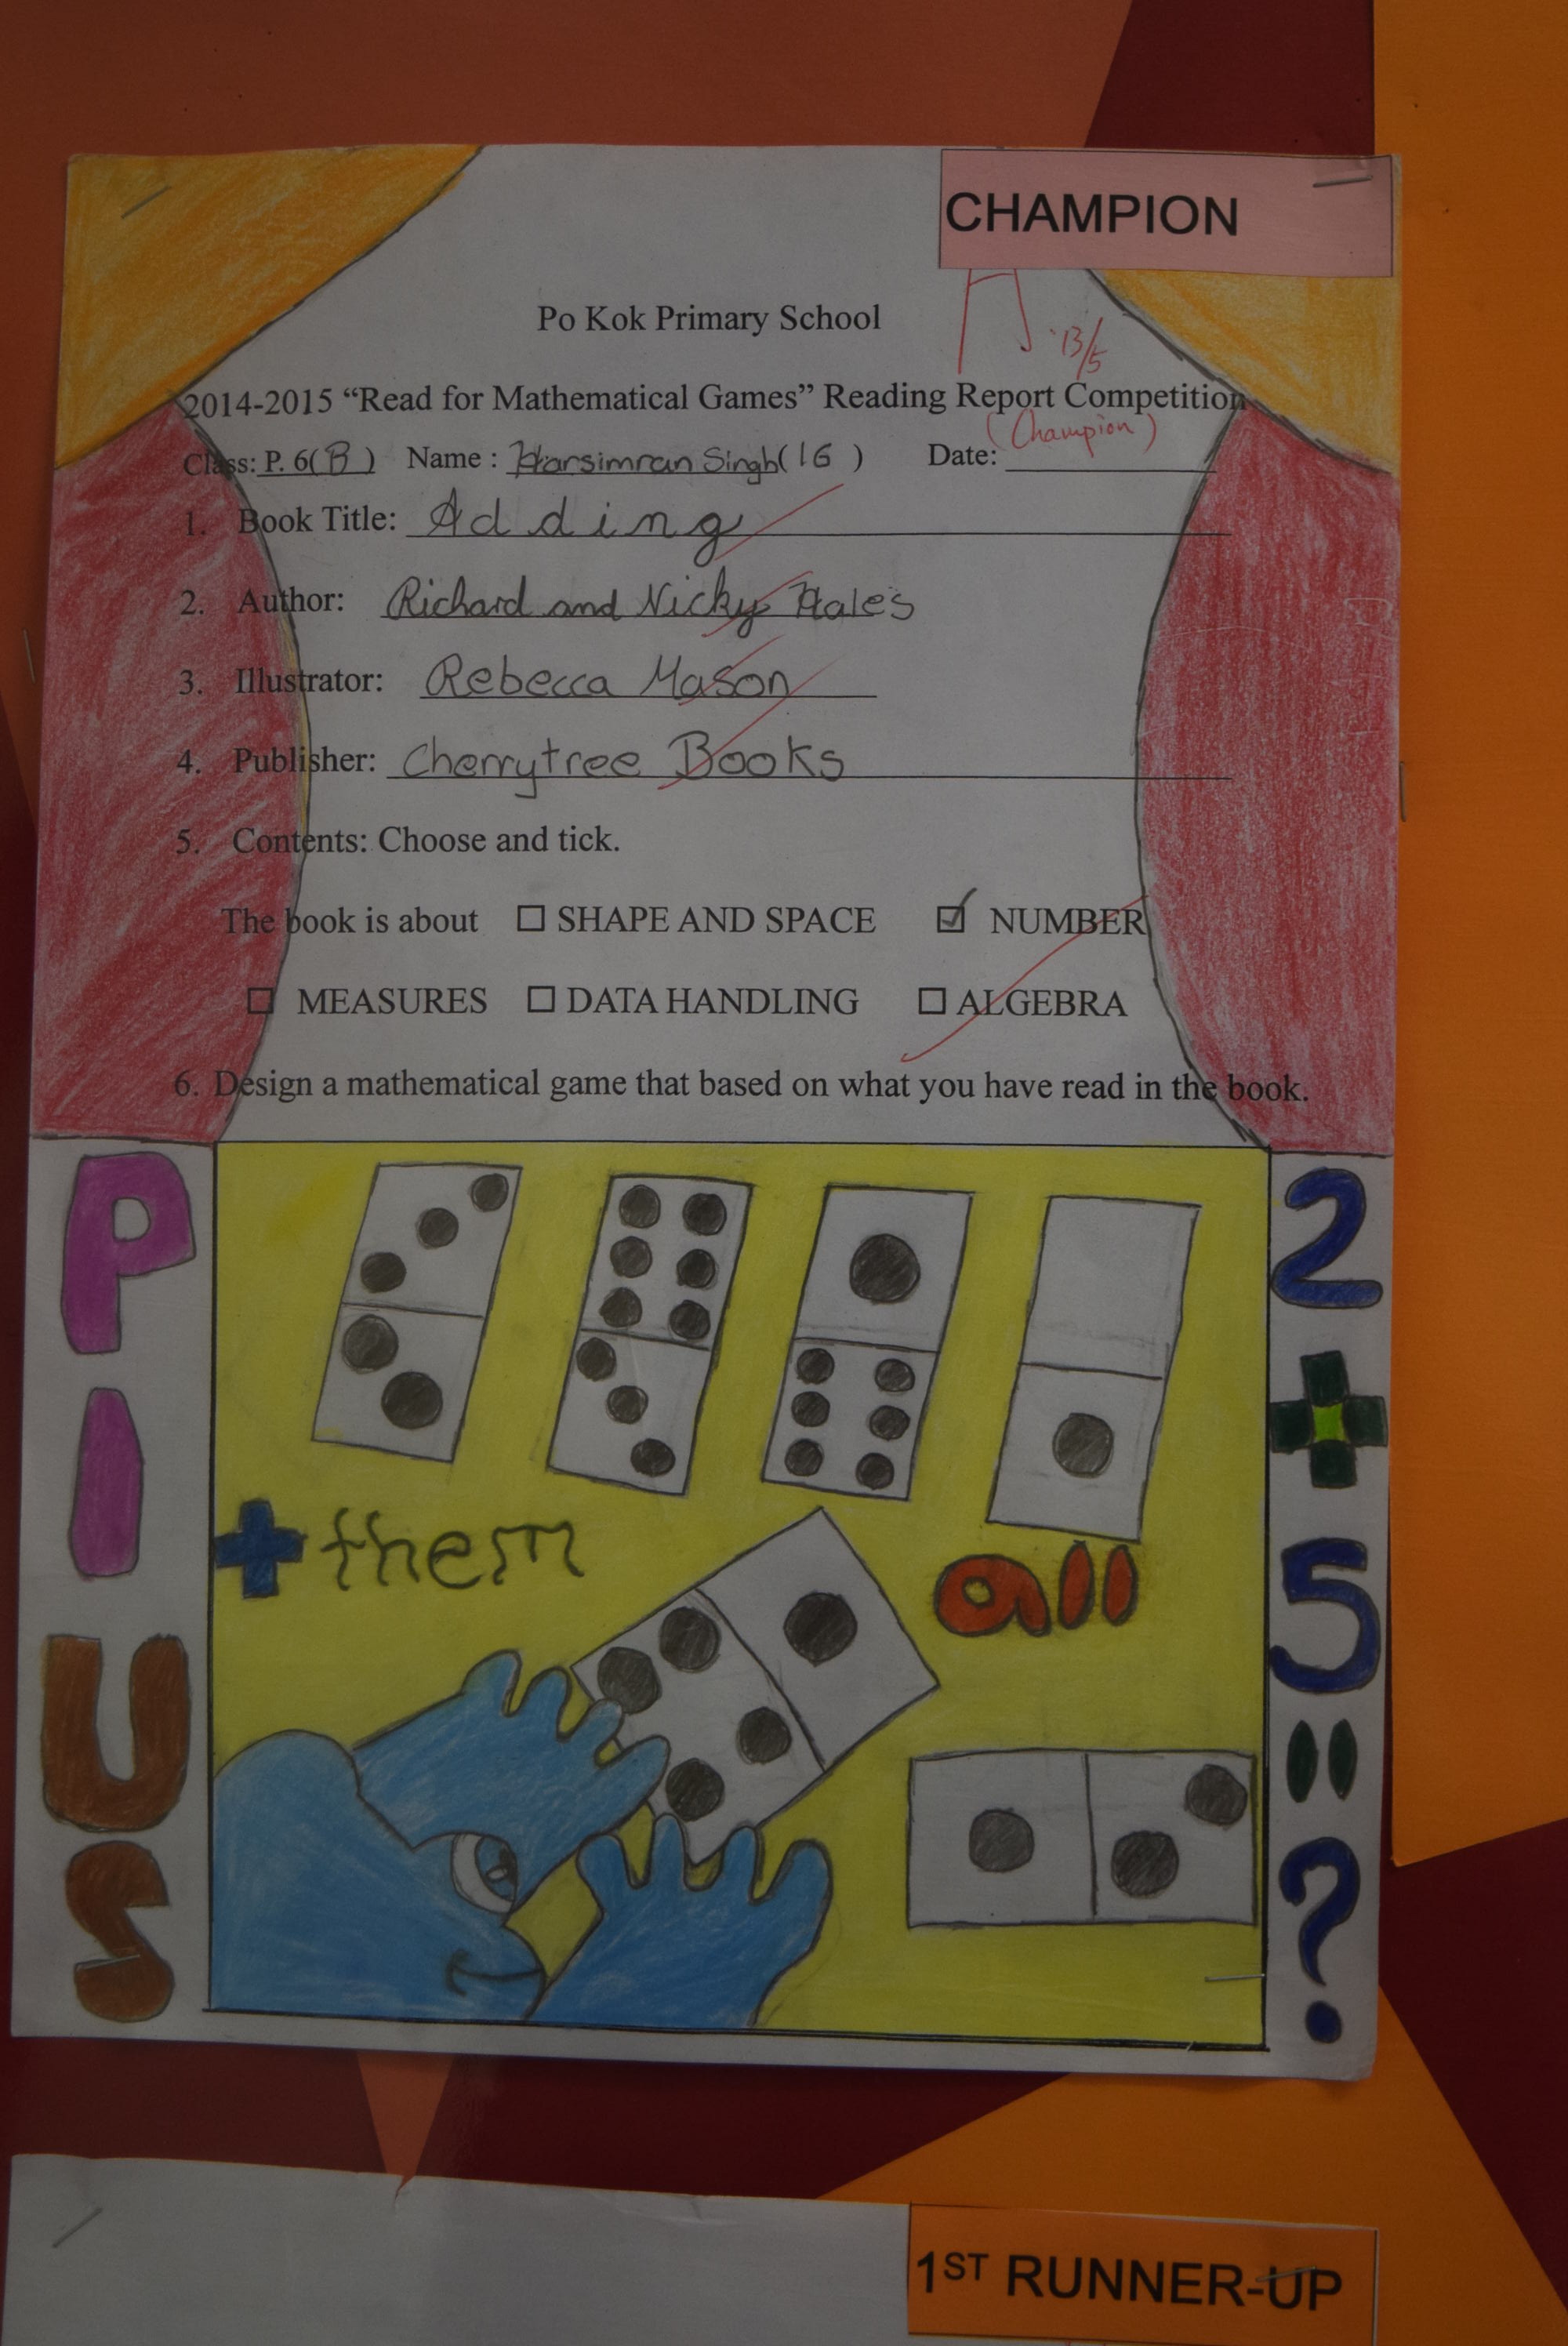 CHAMPION
Po Kok Primary School
A- 13/5
2014-2015 “Read for Mathematical Games” Reading Report Competition
(Champion)
Class: P. 6(B) Name : Harsimran Singh(16 ) Date:
1. Book Title: Adding
2. Author: Richard and Nicky Hales
3. Illustrator: Rebecca Mason
4. Publisher: Cherrytree Books
5. Contents: Choose and tick.
The book is about ☐ SHAPE AND SPACE ☑ NUMBER
☐ MEASURES ☐ DATA HANDLING ☐ ALGEBRA
6. Design a mathematical game that based on what you have read in the book.
PlUS
+ them all
2+5=?
1ST RUNNER-UP